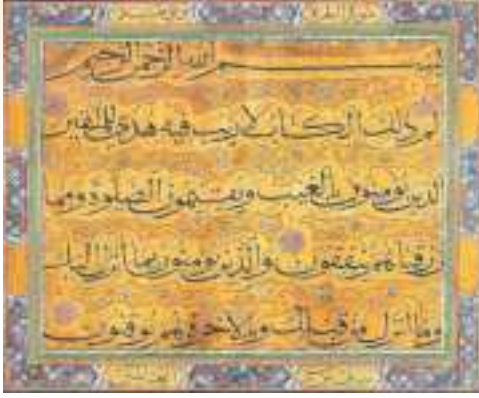 بسم الله الرحمن الرحيم
الم ذلك الكتاب لا ريب فيه هدى للمتقين
الذين يؤمنون بالغيب ويقيمون الصلوة ومما
رزقناهم ينفقون والذين يؤمنون بما أنزل إليك
وما أنزل من قبلك وبالآخرة هم يوقنون